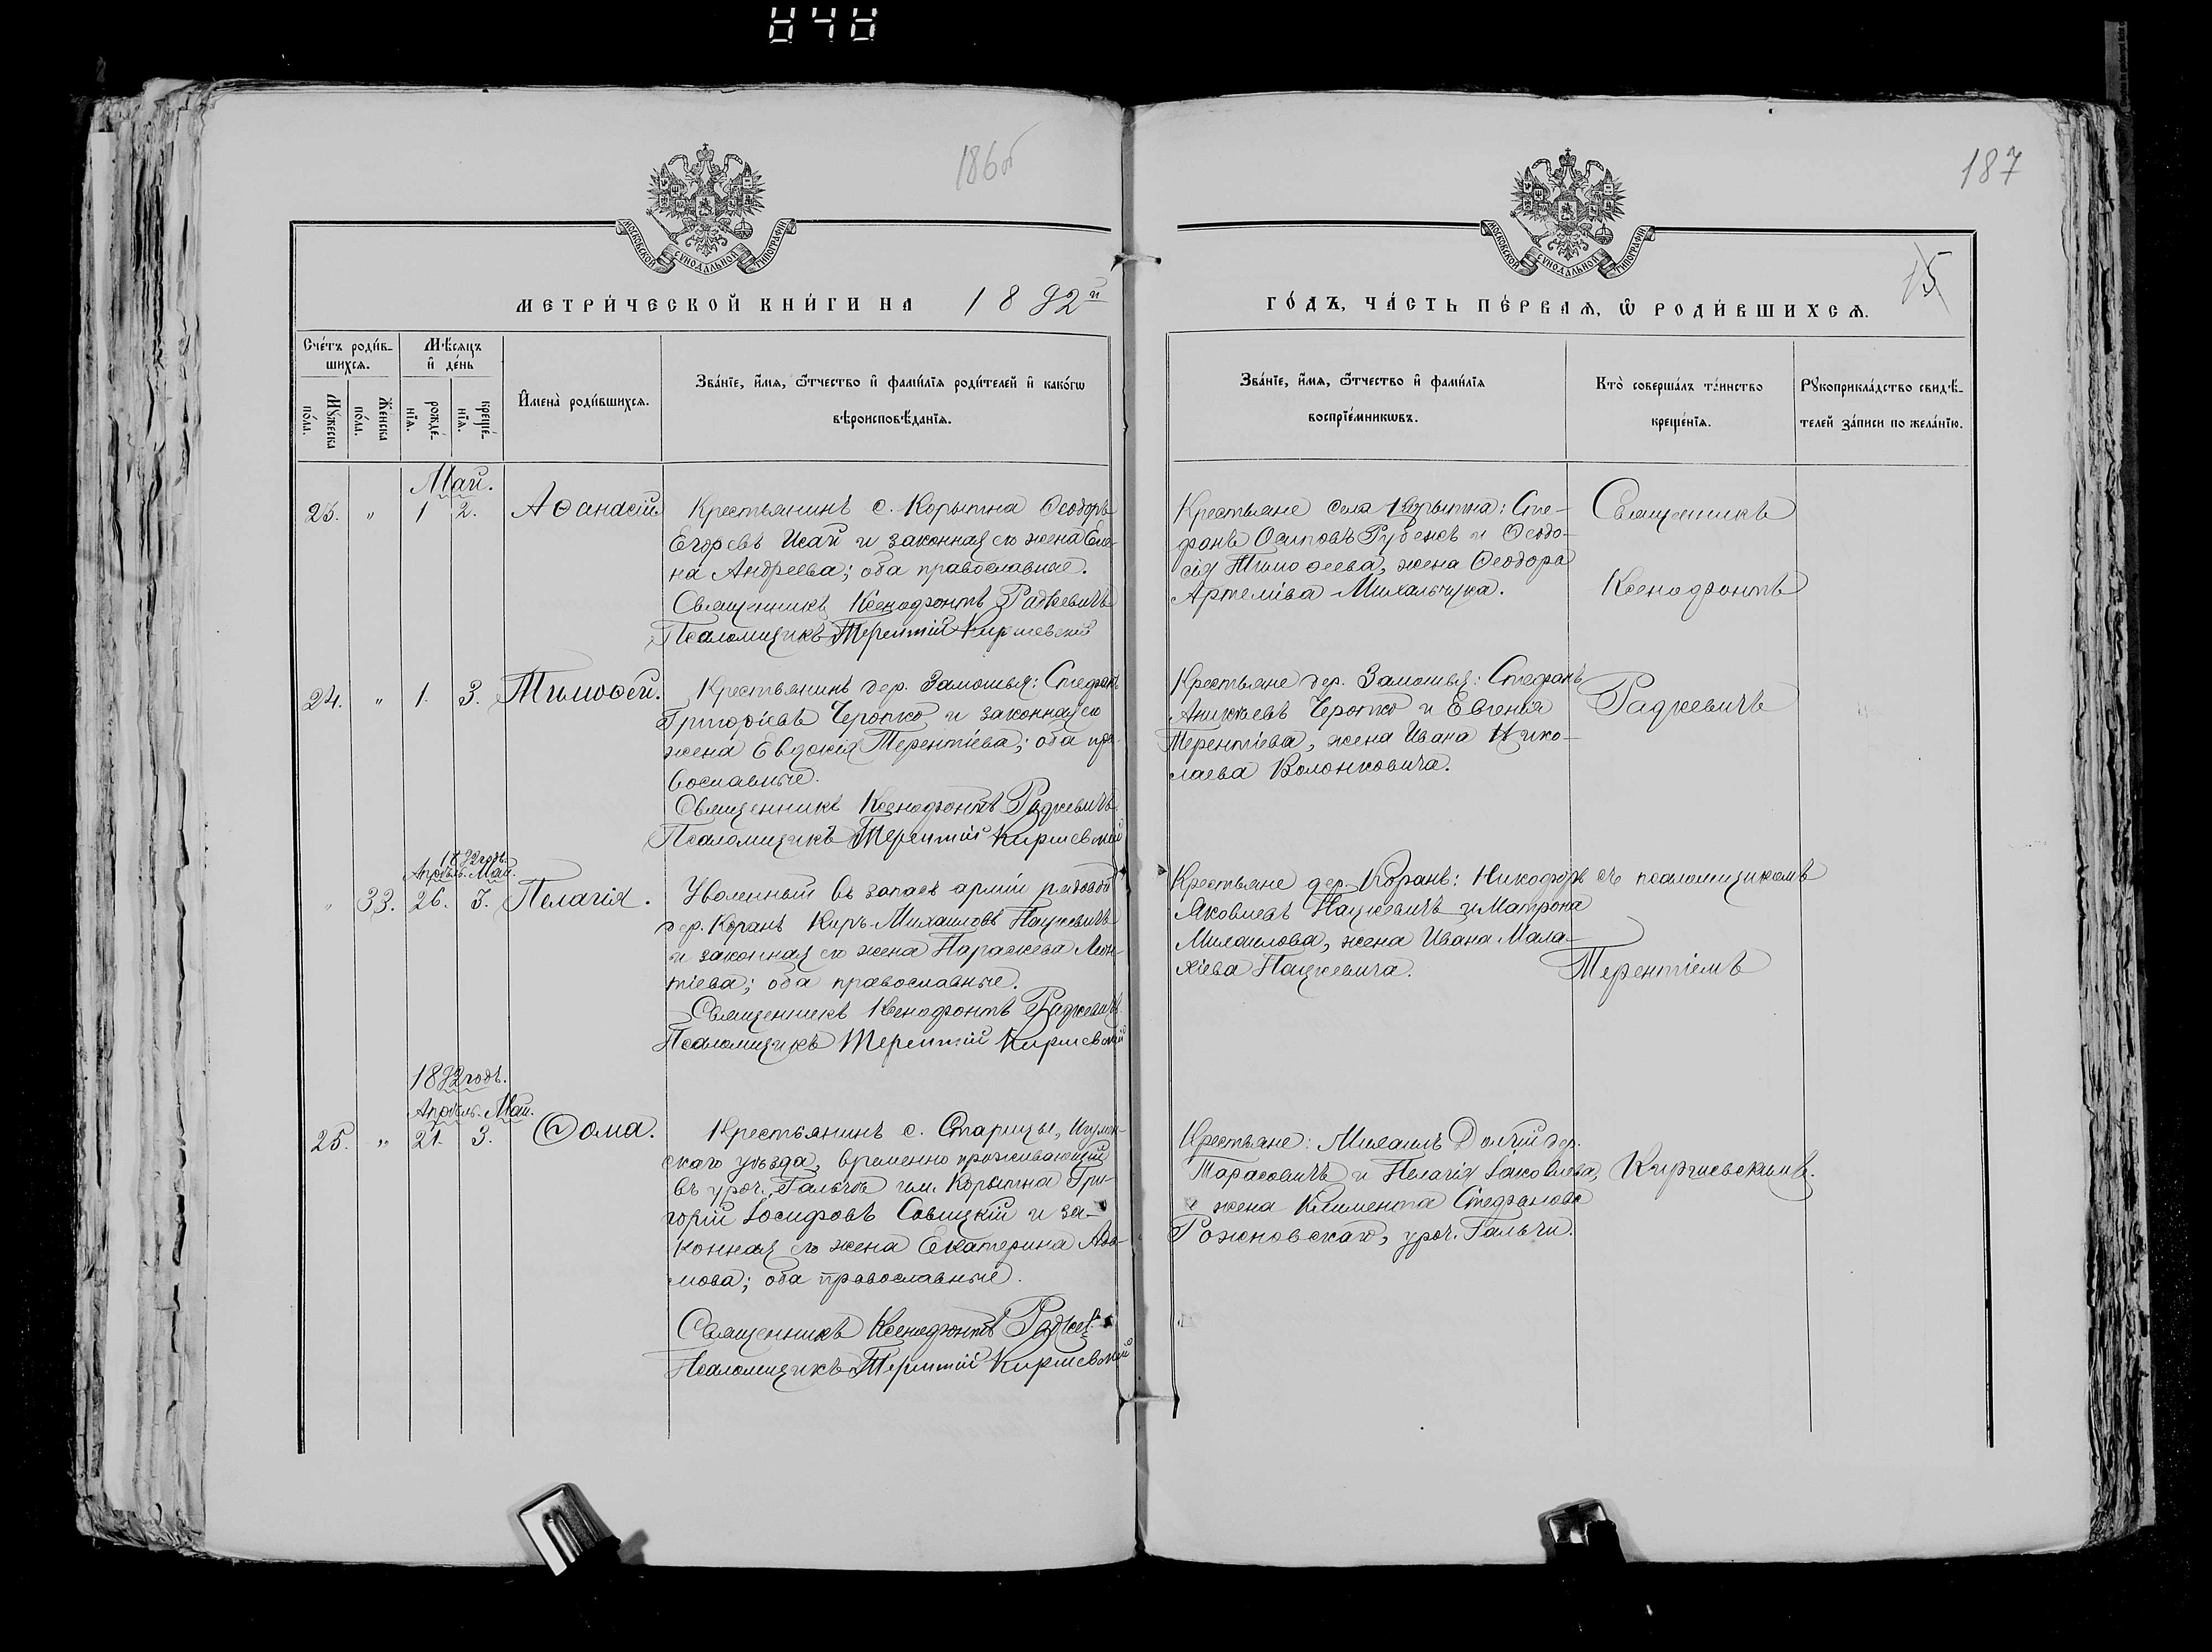 186об
187
МОСКОВСКОЙ СѴНОДАЛЬНОЙ ТИПОГРАФІИ
МОСКОВСКОЙ СѴНОДАЛЬНОЙ ТИПОГРАФІИ
15
МЕТРИ́ЧЕСКОЙ КНИ́ГИ НА 1892й
ГО́ДЪ, ЧА́СТЬ ПЕ́РВАѦ, Ѽ РОДИ́ВШИХСѦ.
Сче́тъ роди́в-
шихсѧ.
Мꙋжеска по́ла.
Же́нска по́ла.
Мѣ́сѧцъ
и҆ де́нь
рожде́-
нїѧ.
креще́-
нїѧ.
И҆мена̀ роди́вшихсѧ.
Зва́нїе, и҆́мѧ, ѻ҆́тчество и҆ фами́лїѧ роди́телей и҆ како́гѡ
вѣроисповѣ́данїѧ.
Зва́нїе, и҆́мѧ, ѻ҆́тчество и҆ фами́лїѧ
воспрїе́мникѡвъ.
Кто̀ соверша́лъ та́инство
креще́нїѧ.
Рꙋкоприкла́дство свидѣ́-
телей за́писи по жела́нїю.
Май.
23. " 1 2. Аѳанасій
Крестьянинъ с. Корытна Ѳеодоръ
Егоровъ Исай и законная его жена Еле-
на Андреева; оба православные.
Священникъ Ксенофонтъ Радкевичъ
Псаломщикъ Терентій Киркевскій
Крестьяне села Корытна: Сте-
фанъ Осиповъ Рубенъ и Ѳеодо-
сія Тимоѳеева, жена Ѳеодора
Артеміва Михальчука.
Священникъ
Ксенофонтъ
24. " 1. 3. Тимоѳей.
Крестьянинъ дер. Замошья: Стефанъ
Григоріевъ Черопко и законная его
жена Евдокія Терентіева; оба пра-
вославные.
Священникъ Ксенофонтъ Радкевичъ.
Псаломщикъ Терентій
Крестьяне дер. Замошья: Стефанъ
Черопко и Евгенія
Терентіева, жена Ивана Нико-
лаева Волонковича.
Радкевичъ
1892 годъ.
Апрѣль. Май.
" 33. 26. 3. Пелагія.
Уволенный въ запасъ арміи рядовой
дер. Коранъ Киръ Михаиловъ Нацкевичъ
и законная его жена Параскева Леон-
тіева; оба православные.
Священникъ Ксенофонтъ Радкевичъ.
Псаломщикъ Терентій
Крестьяне дер. Коранъ: Никифоръ
Яковлевъ Нацкевичъ и Матрона
Михаилова, жена Ивана Мала-
хіева Нацкевича.
съ псаломщикомъ
Терентіемъ
1892 годъ.
Апрѣль. Май.
25. " 21. 3. Ѳома.
Крестьянинъ с. Старицы, Игумен-
скаго уѣзда, временно проживающій
въ уроч. Гальчѣ им. Корытна Гри-
горій Іосифовъ Савицкій и за-
конная его жена Екатерина Ада-
мова; оба православные.
Священникъ Ксенофонтъ
Псаломщикъ Терентій
Крестьяне: Михаилъ Долгій дер.
Тарасовичъ и Пелагія Іаковлева,
жена Климента Стефанова
Рожновскаго, уроч. Гальчи.